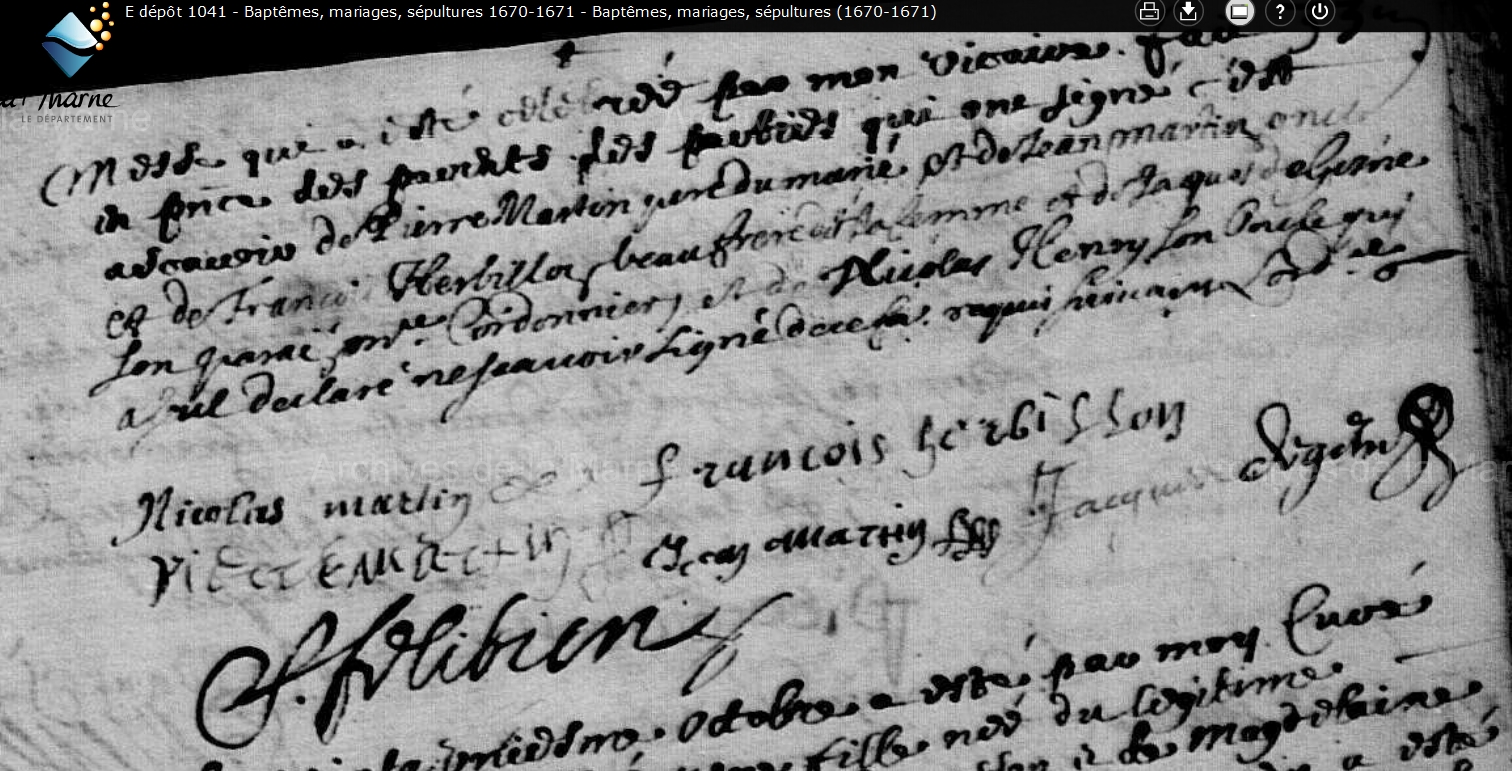 E dépôt 1041 - Baptêmes, mariages, sépultures 1670-1671 - Baptêmes, mariages, sépultures (1670-1671)
Marne
LE DÉPARTEMENT
Messe qui a esté celebreé par mon vicaire. fait
en pñce des parents des parties qui ont signé
ascauoir de Pierre Martin pere du marié et de Jean martin oncle
et de Francois Herbillon beaufrere a la femme et de Jaques
son Cordonnier et de Nicolas Henry son Oncle qui
a seul declaré ne scauoir signé de ce requi suivant Lord.ce
Nicolas martin
francois herbillon
PiErrE MArtin
Jean Martin
Jacques
Felibien
octobre a esté par moy Curé
fille neé du legitime
de magdelaine
a esté